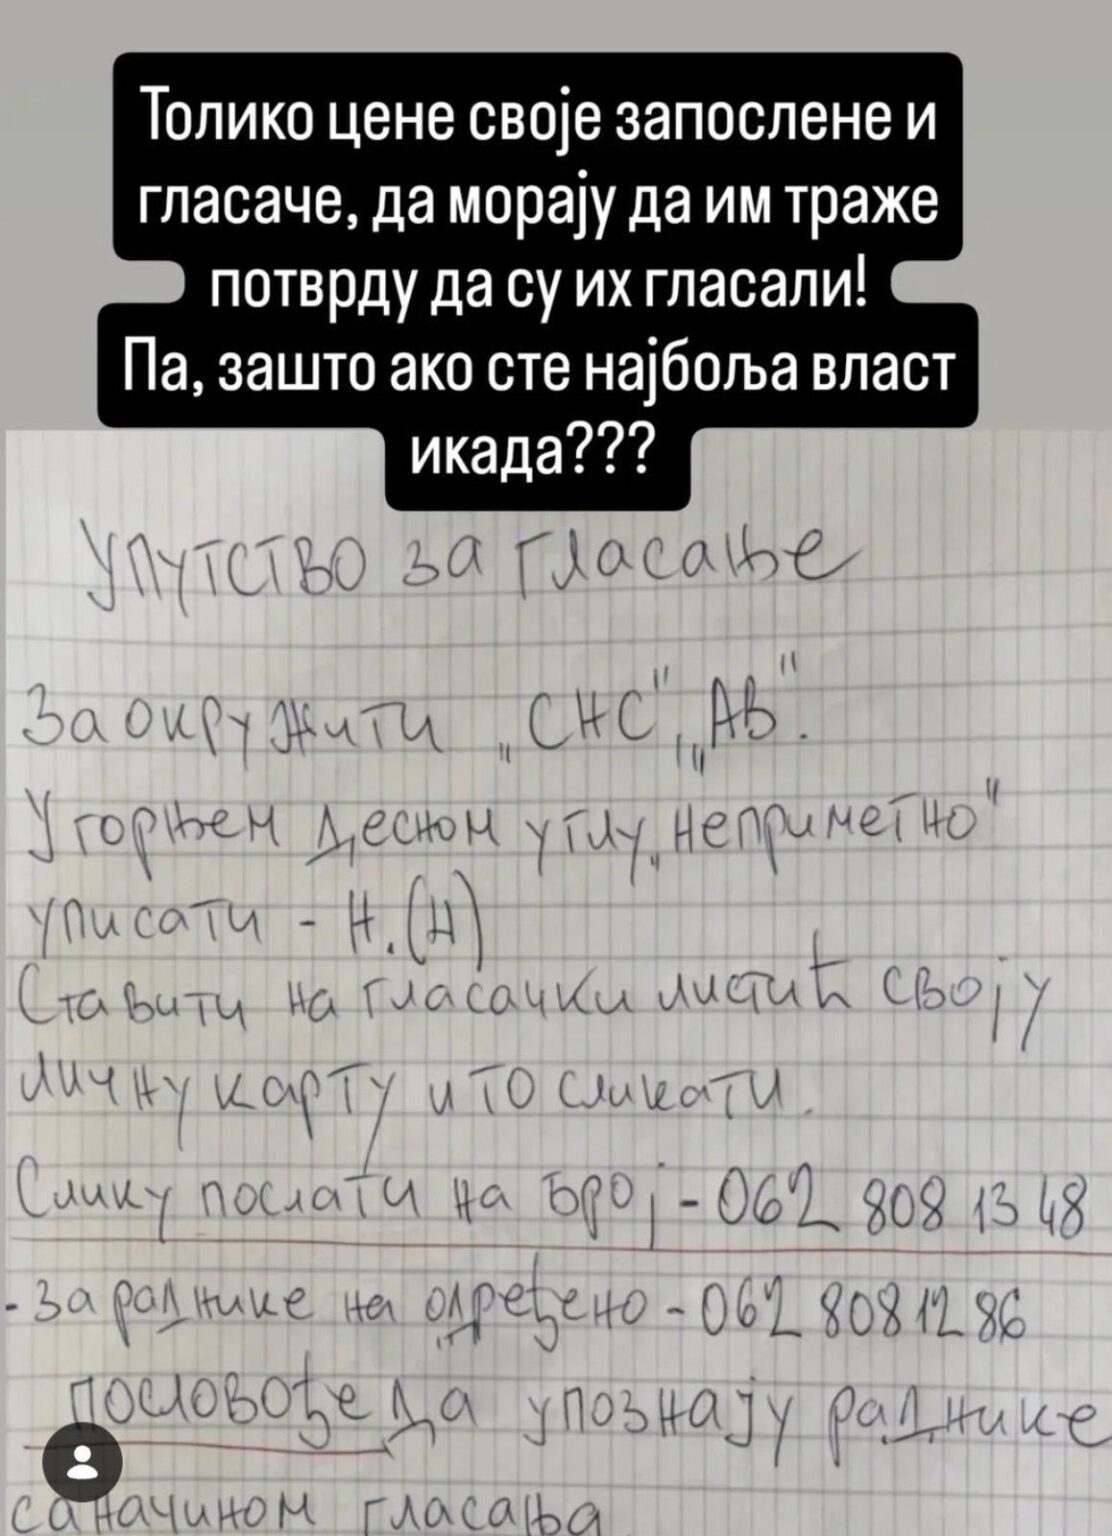 Толико цене своје запослене и
гласаче, да морају да им траже
потврду да су их гласали!
Па, зашто ако сте најбоља власт
икада???
Упутство за гласање
Заокружити „СНС", „АВ".
У горњем десном углу „неприметно"
уписати - Н.(Н)
Ставити на гласачки листић своју
личну карту и то сликати.
Слику послати на број - 062 808 13 48
- За раднике на одређено - 062 808 12 86
пословође да упознају раднике
са начином гласања